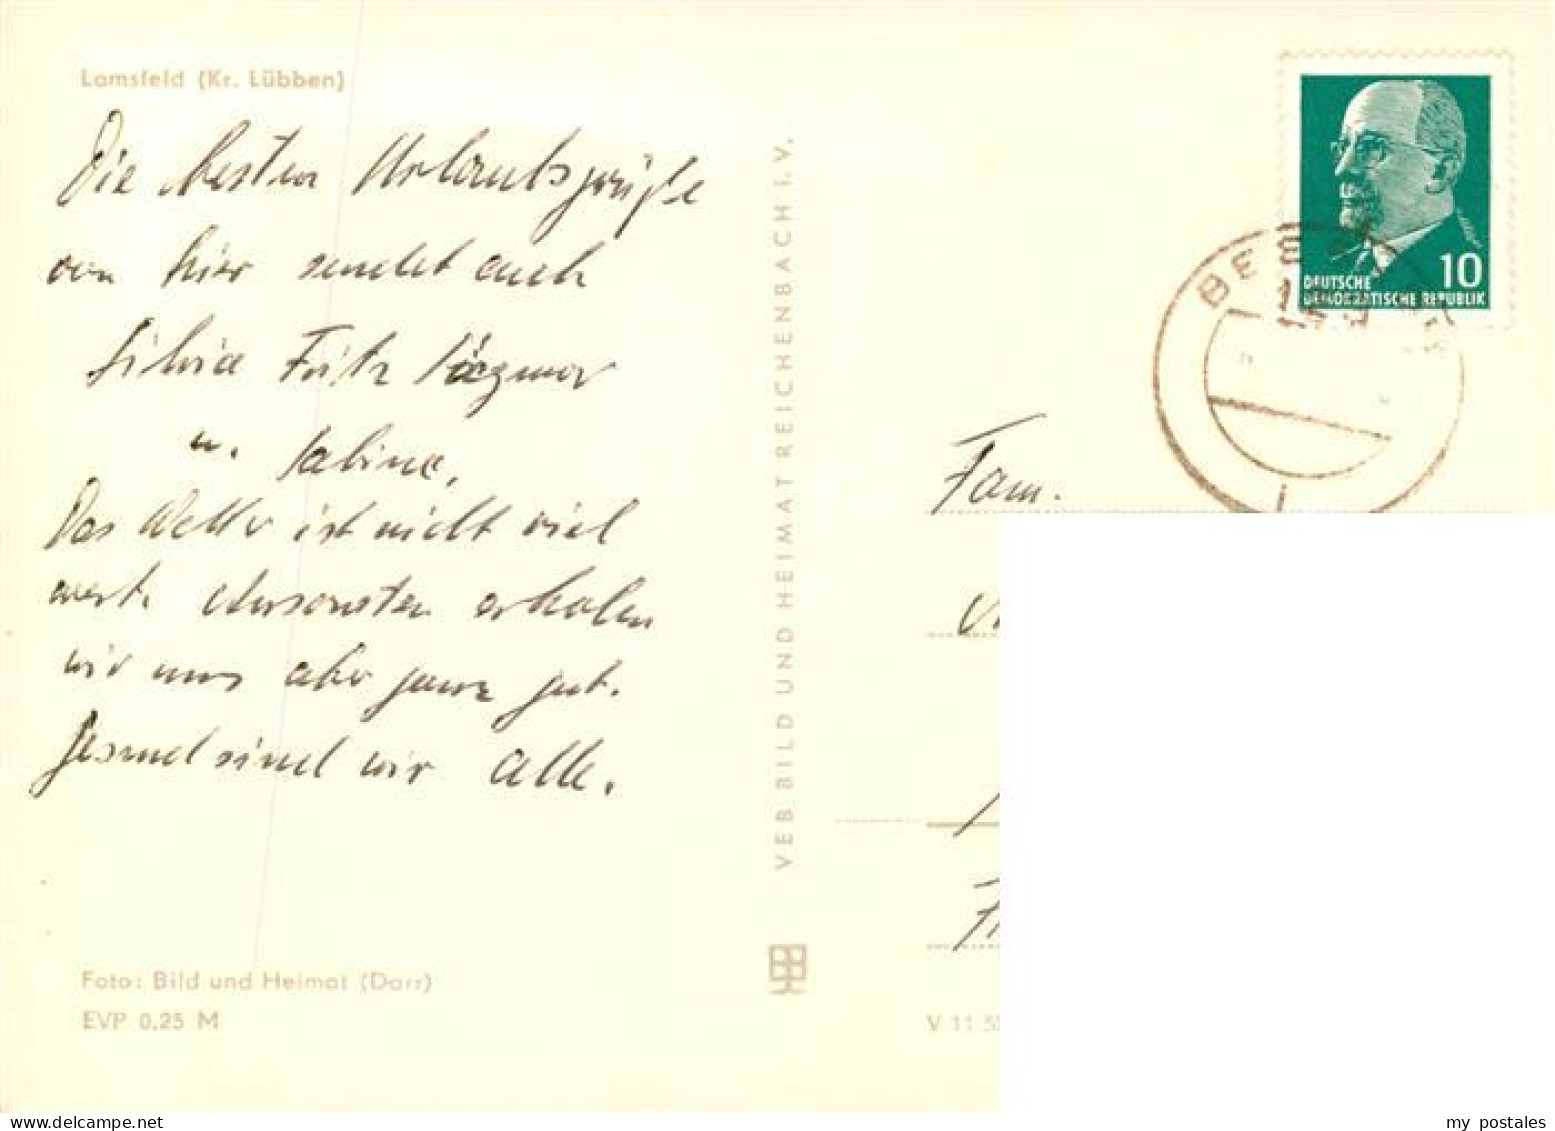 Lamsfeld (Kr. Lübben)
Die besten Urlaubsgrüße
von hier sendet euch
Silvia Fritz
u. Sabine,
Das Wetter ist nicht viel
wert. Ansonsten erholen
wir uns aber ganz gut.
Gesund sind wir alle.
Foto: Bild und Heimat (Darr)
EVP 0,25 M
VEB BILD UND HEIMAT REICHENBACH I. V.
10
DEUTSCHE
DEMOKRATISCHE REPUBLIK
Fam.
V 11 5
delcampe.net
my_postales